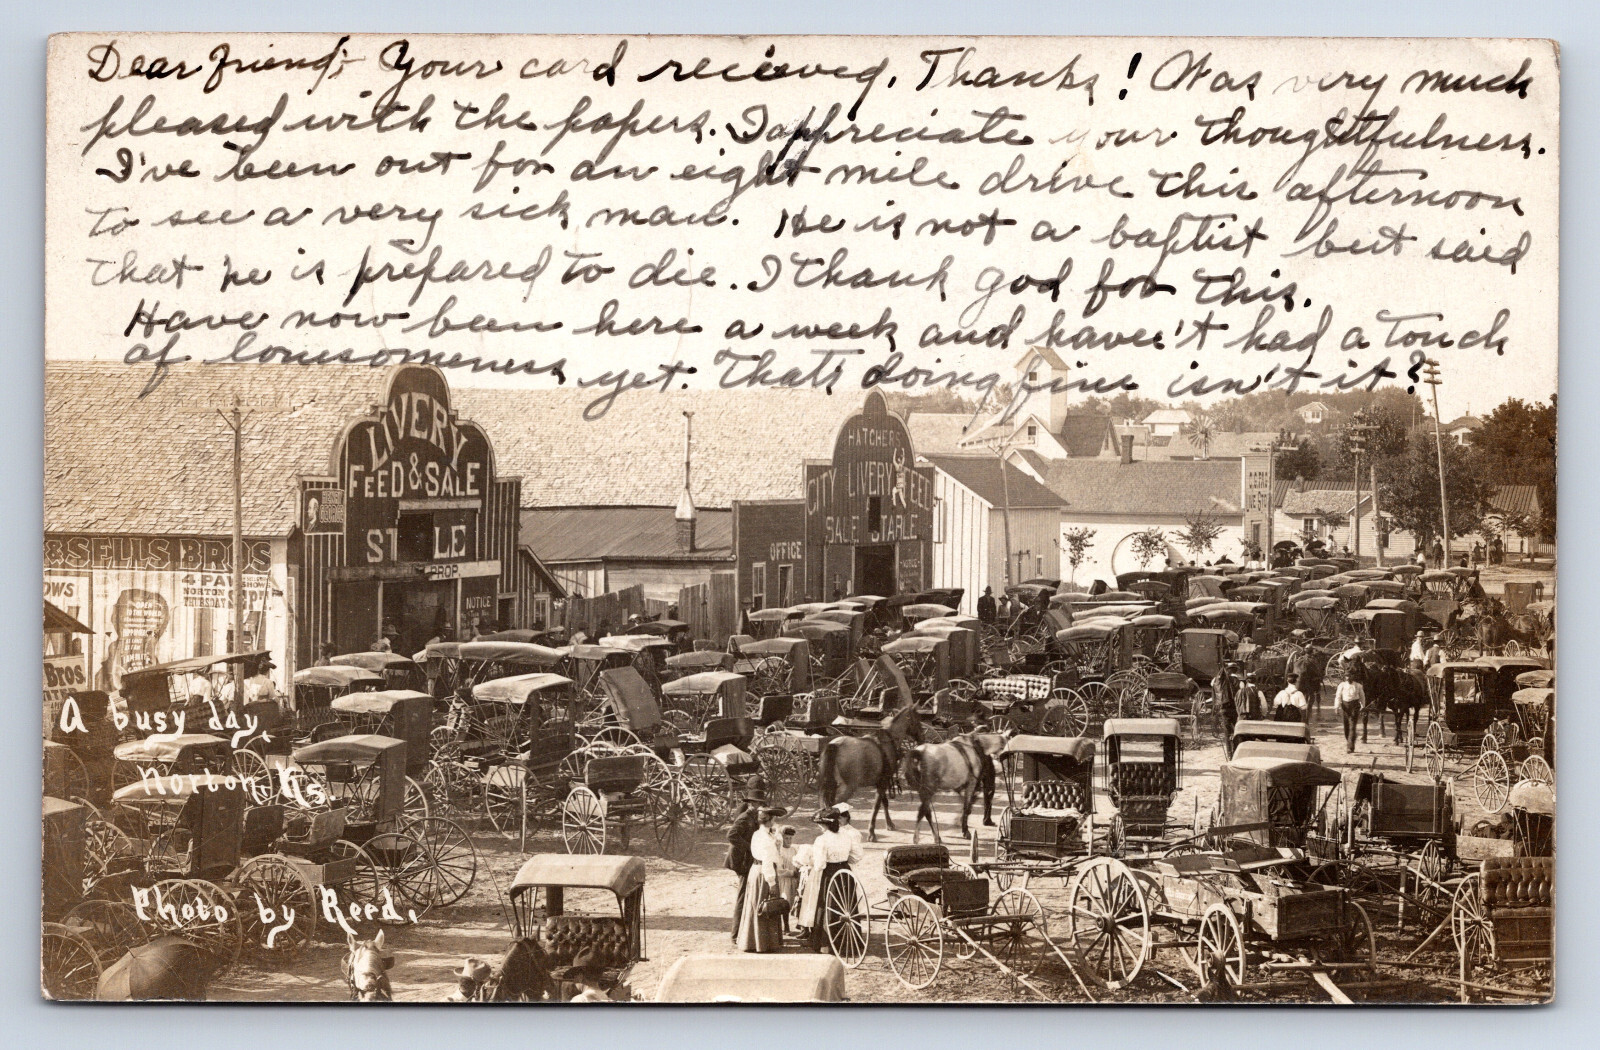 Dear friend;- Your card received. Thanks! Was very much
pleased with the papers. I appreciate your thoughtfulness.
I've been out for an eight mile drive this afternoon
to see a very sick man. He is not a baptist but said
that he is prepared to die. I thank god for this.
Have now been here a week and haven't had a touch
of lonesomeness yet. That's doing fine isn't it?
LIVERY
FEED & SALE
ST LE
PROP.
NOTICE
HATCHERS
CITY LIVERY FEED
SALE STABLE
OFFICE
& SELLS BROS
4-PAW
SHOWS
NORTON
THURSDAY SEPT
OWS
Bros
A busy day,
Norton, Ks.
Photo by Reed.